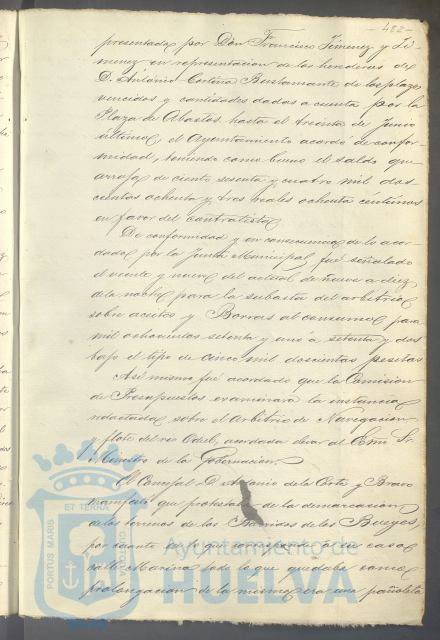 -482-
presentada por Don Francisco Jimenez y Ji-
menez en representacion de los herederos de
D. Antonio Cortina Bustamante de los plazos
vencidos y cantidades dados a cuenta por la
Plaza de Abastos, hasta el treinta de Junio
último, el Ayuntamiento acordó de confor-
midad, teniendo como bueno el saldo que
arroja de ciento sesenta y cuatro mil dos-
cientos ochenta y tres reales ochenta centimos
en favor del contratista
De conformidad y en consecuencia de lo acor-
dado por la Junta Municipal, fué señalado
el veinte y nueve del actual de nueve a diez
de la noche para la subasta del arbitrio
sobre aceites y Borras al consumo para
mil ochocientos setenta y uno á setenta y dos
bajo el tipo de cinco mil doscientas pesetas
Asi mismo fué acordado que la Comision
de Presupuestos examinara la instancia
redactada sobre el arbitrio de Navegacion
y flote del rio Odiel, acordada elevar al Ecmo. Sr.
Ministro de la Gobernacion.
El Concejal D. Antonio de la Corte y Bravo
manifestó que protestaba de la demarcacion
de los terrenos de los de los Bueyes,
por cuanto la casa
calle Marina todo lo que quedaba como
prolongacion de la misma era una
PORTUS MARIS ET TERRÆ CUSTODIO
Ayuntamiento de
HUELVA